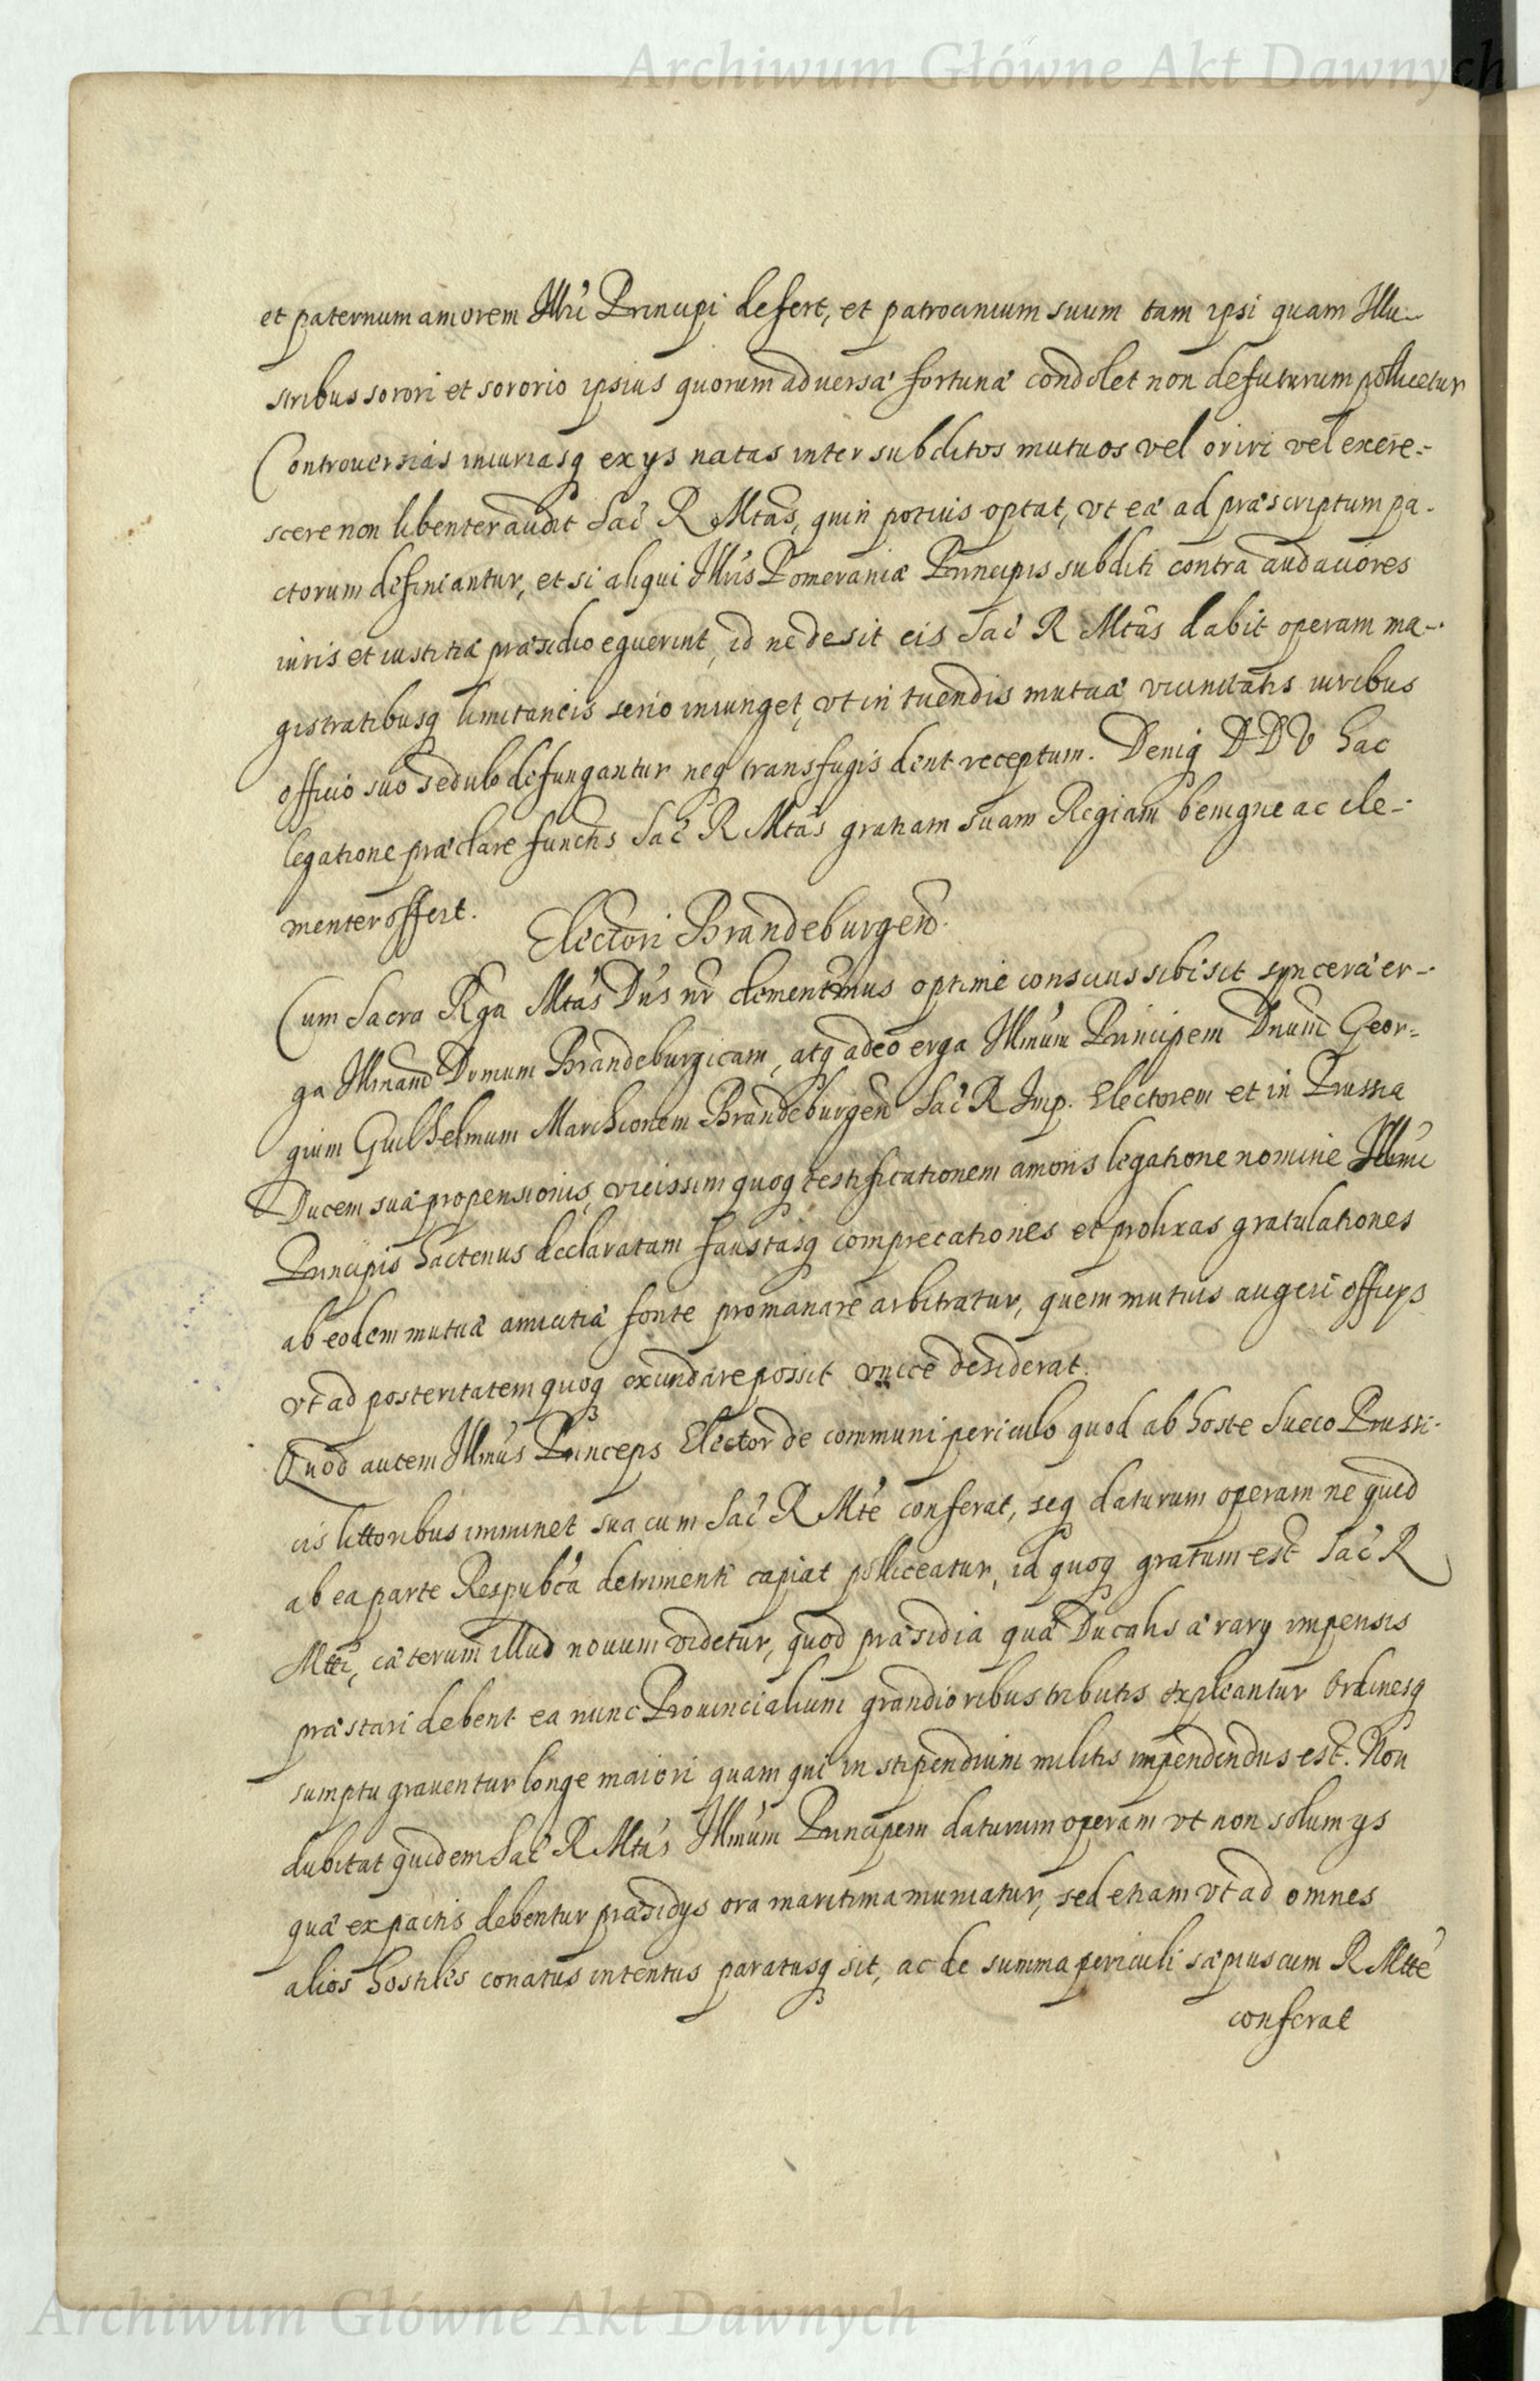 Archiwum Główne Akt Dawnych
et paternum amorem Illri Principi defert, et patrocinium suum tam ipsi quam Illu-
stribus sorori et sororio ipsius quorum adversae fortunae condolet non defuturum pollicetur
Controuersias iniuriasq ex ijs natas inter subditos mutuos vel oriri vel excre-
scere non libenter audit Sac R Mtas, quin potius optat, vt eae ad praescriptum pa-
ctorum definiantur, et si aliqui Illris Pomeraniae Principis subditi contra audaciores
iuris et iustitiae praesidio eguerint, id ne desit eis Sac R Mtas dabit operam ma-
gistratibusq limitaneis serio iniunget, vt in tuendis mutuae vicinitatis iuribus
officio suo sedulo defungantur neq transfugis dent receptum. Deniq D D V hac
legatione praeclare functis Sac R Mtas gratiam suam Regiam benigne ac cle-
menter offert.
Electori Brandeburgen
Cum Sacra Rga Mtas Dns nr clementmus optime conscius sibi sit syncerae er-
ga Illmam Domum Brandeburgicam, atq adeo erga Illmum Principem Dnum Geor-
gium Guilhelmum Marchionem Brandeburgen Sac R Imp. Electorem et in Prussia
Ducem suae propensionis, vicissim quoq testificationem amoris legatione nomine Illmi
Principis hactenus declaratam faustasq comprecationes et prolixas gratulationes
ab eodem mutuae amicitiae fonte promanare arbitratur, quem mutuis augeri officijs
vt ad posteritatem quoq exundare possit vnice desiderat.
Quod autem Illmus Princeps Elector de communi periculo quod ab hoste Sueco Prussi-
cis littoribus imminet sua cum Sac R Mte conferat, seq daturum operam ne quid
ab ea parte Respubca detrimenti capiat polliceatur, id quoq gratum est Sac R
Mtti, caeterum illud nouum videtur, quod praesidia quae Ducalis aerarij impensis
praestari debent ea nunc Prouincialium grandioribus tributis expleantur Ordinesq
sumptu grauentur longe maiori quam qui in stipendium militis impendendus est. Non
dubitat quidem Sac R Mtas Illmum Principem daturum operam vt non solum ijs
quae ex pactis debentur praesidijs ora maritima muniatur, sed etiam vt ad omnes
alios hostiles conatus intentus paratusq sit, ac de summa periculi saepius cum R Mtte
conferat
Archiwum Główne Akt Dawnych